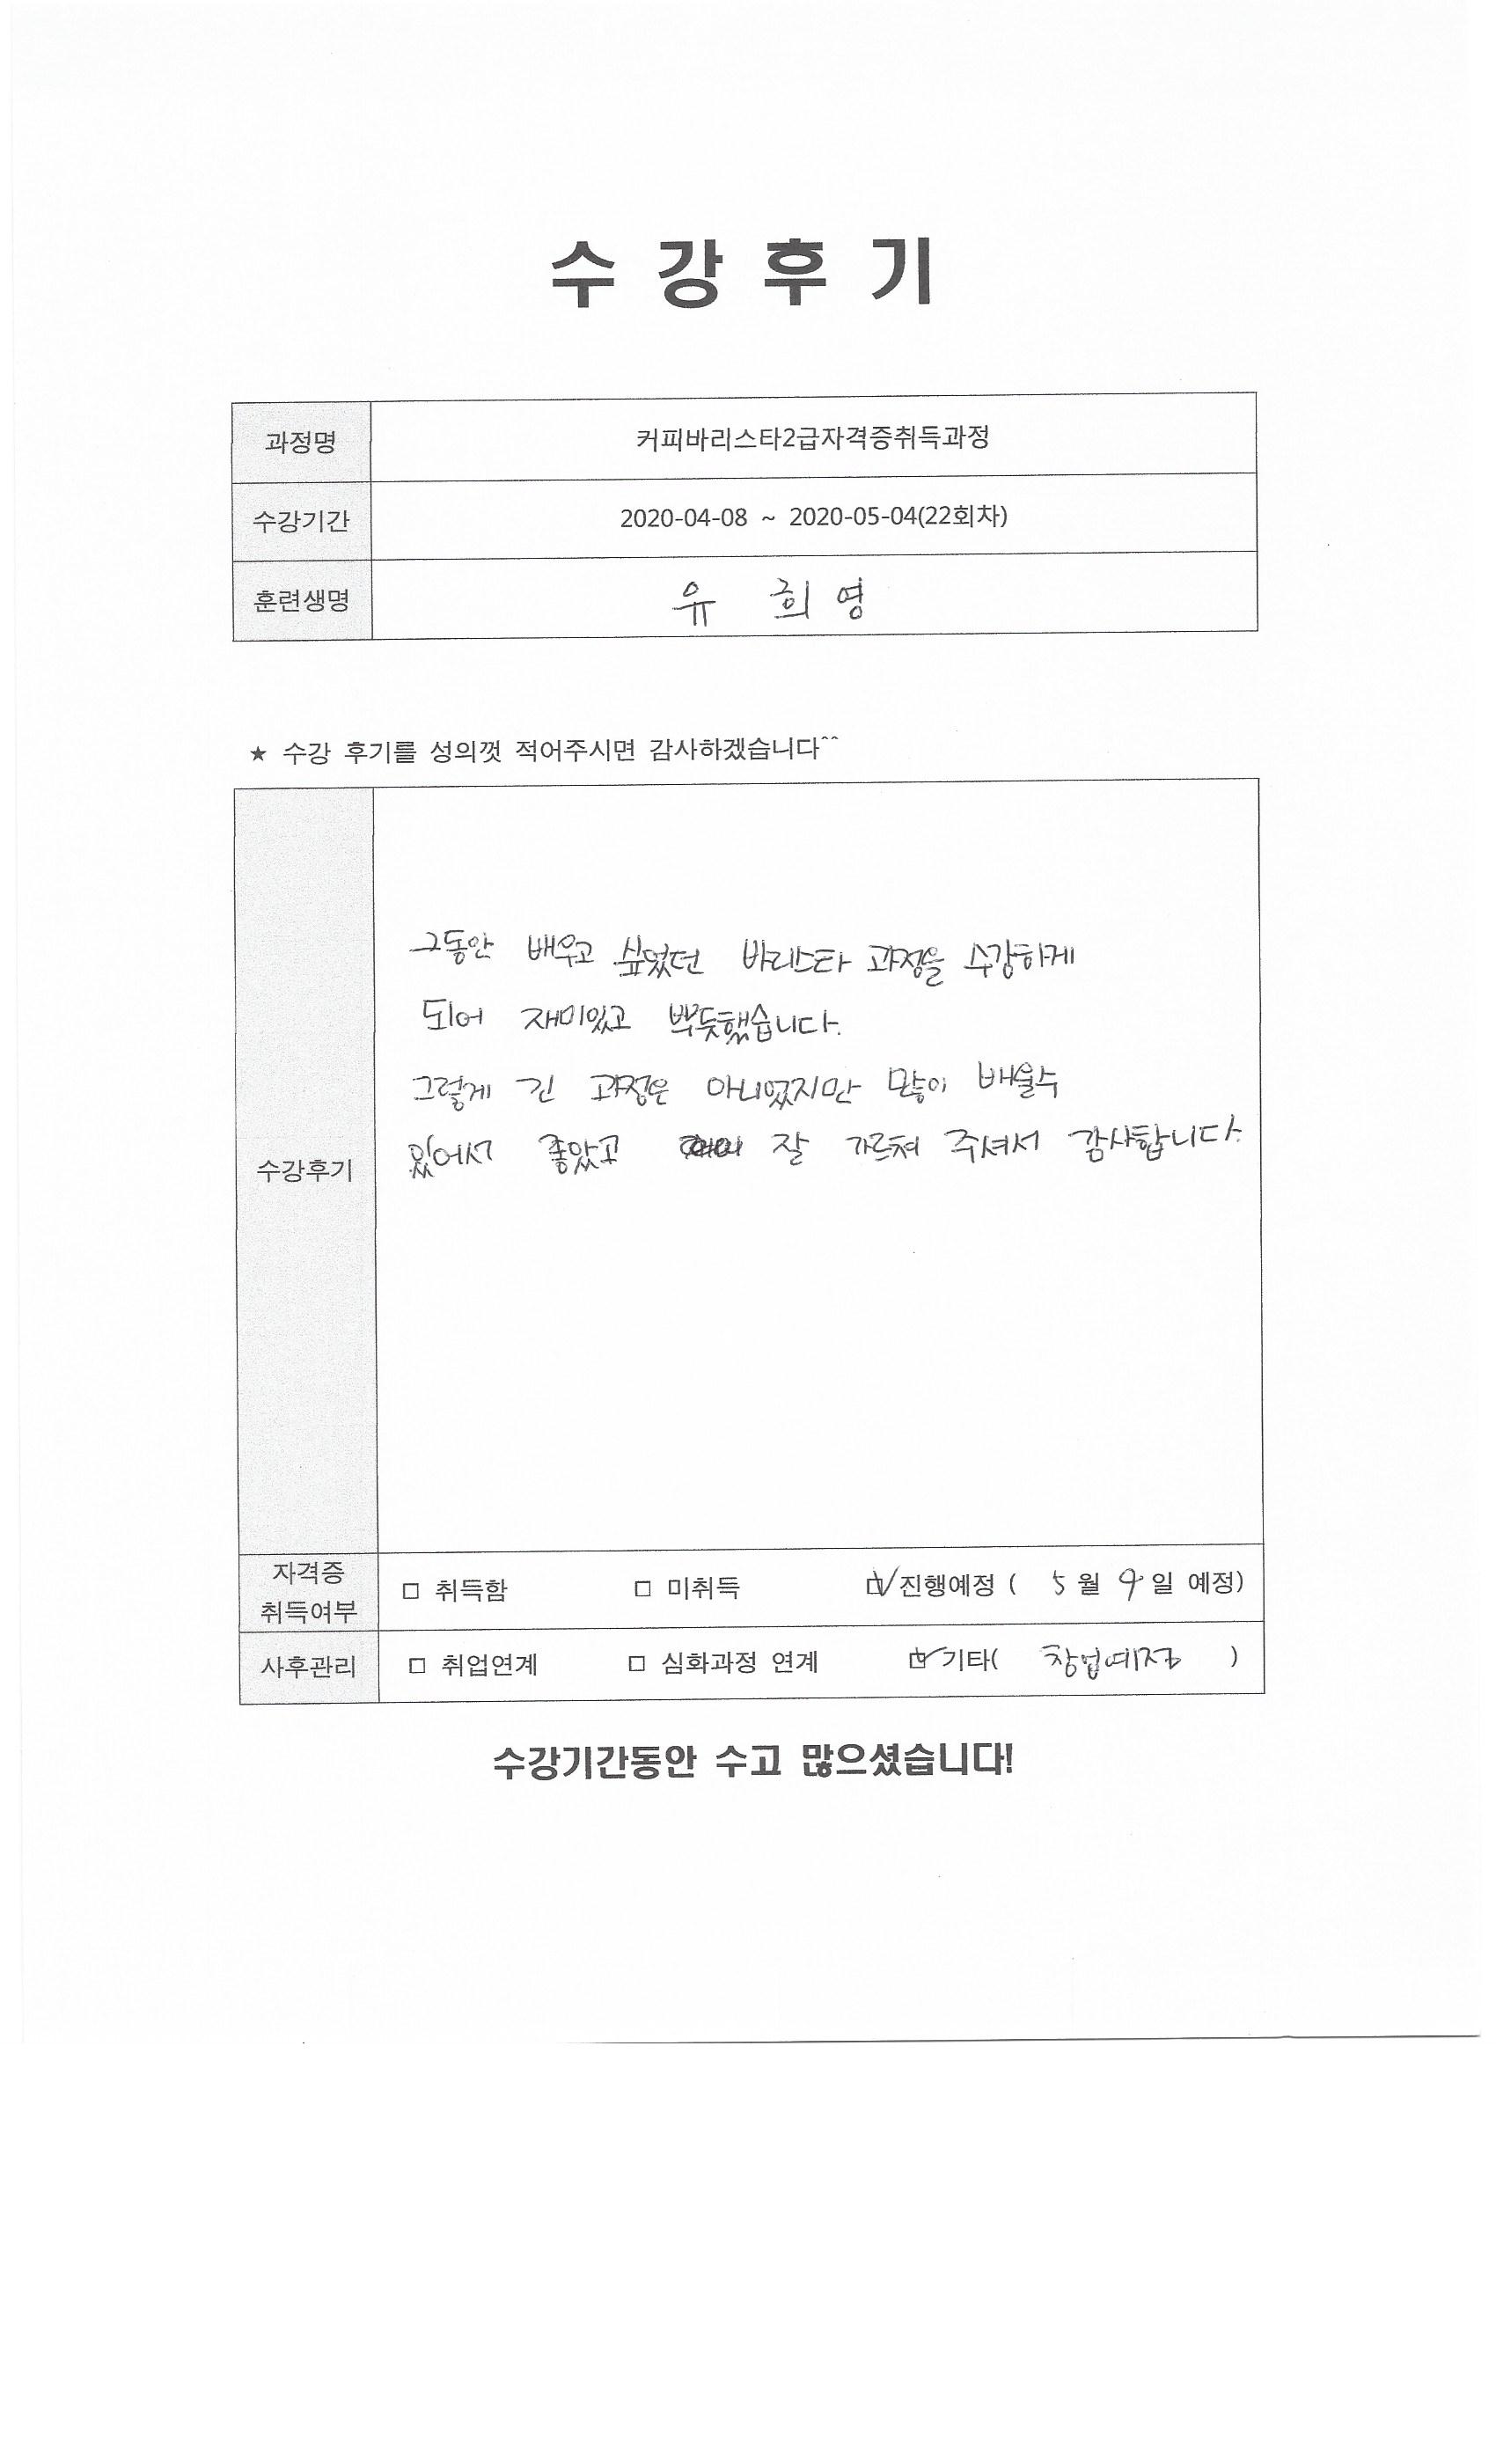 수강후기
과정명 커피바리스타2급자격증취득과정
수강기간 2020-04-08 ~ 2020-05-04(22회차)
훈련생명 유 희영
★ 수강 후기를 성의껏 적어주시면 감사하겠습니다^^
그동안 배우고 싶었던 바리스타 과정을 수강하게
되어 재미있고 뿌듯했습니다.
그렇게 긴 과정은 아니었지만 많이 배울수
있어서 좋았고 잘 가르쳐 주셔서 감사합니다.
수강후기
자격증
취득여부 □ 취득함 □ 미취득 ☑진행예정 ( 5월 9일 예정)
사후관리 □ 취업연계 □ 심화과정 연계 ☑기타( 창업예정 )
수강기간동안 수고 많으셨습니다!